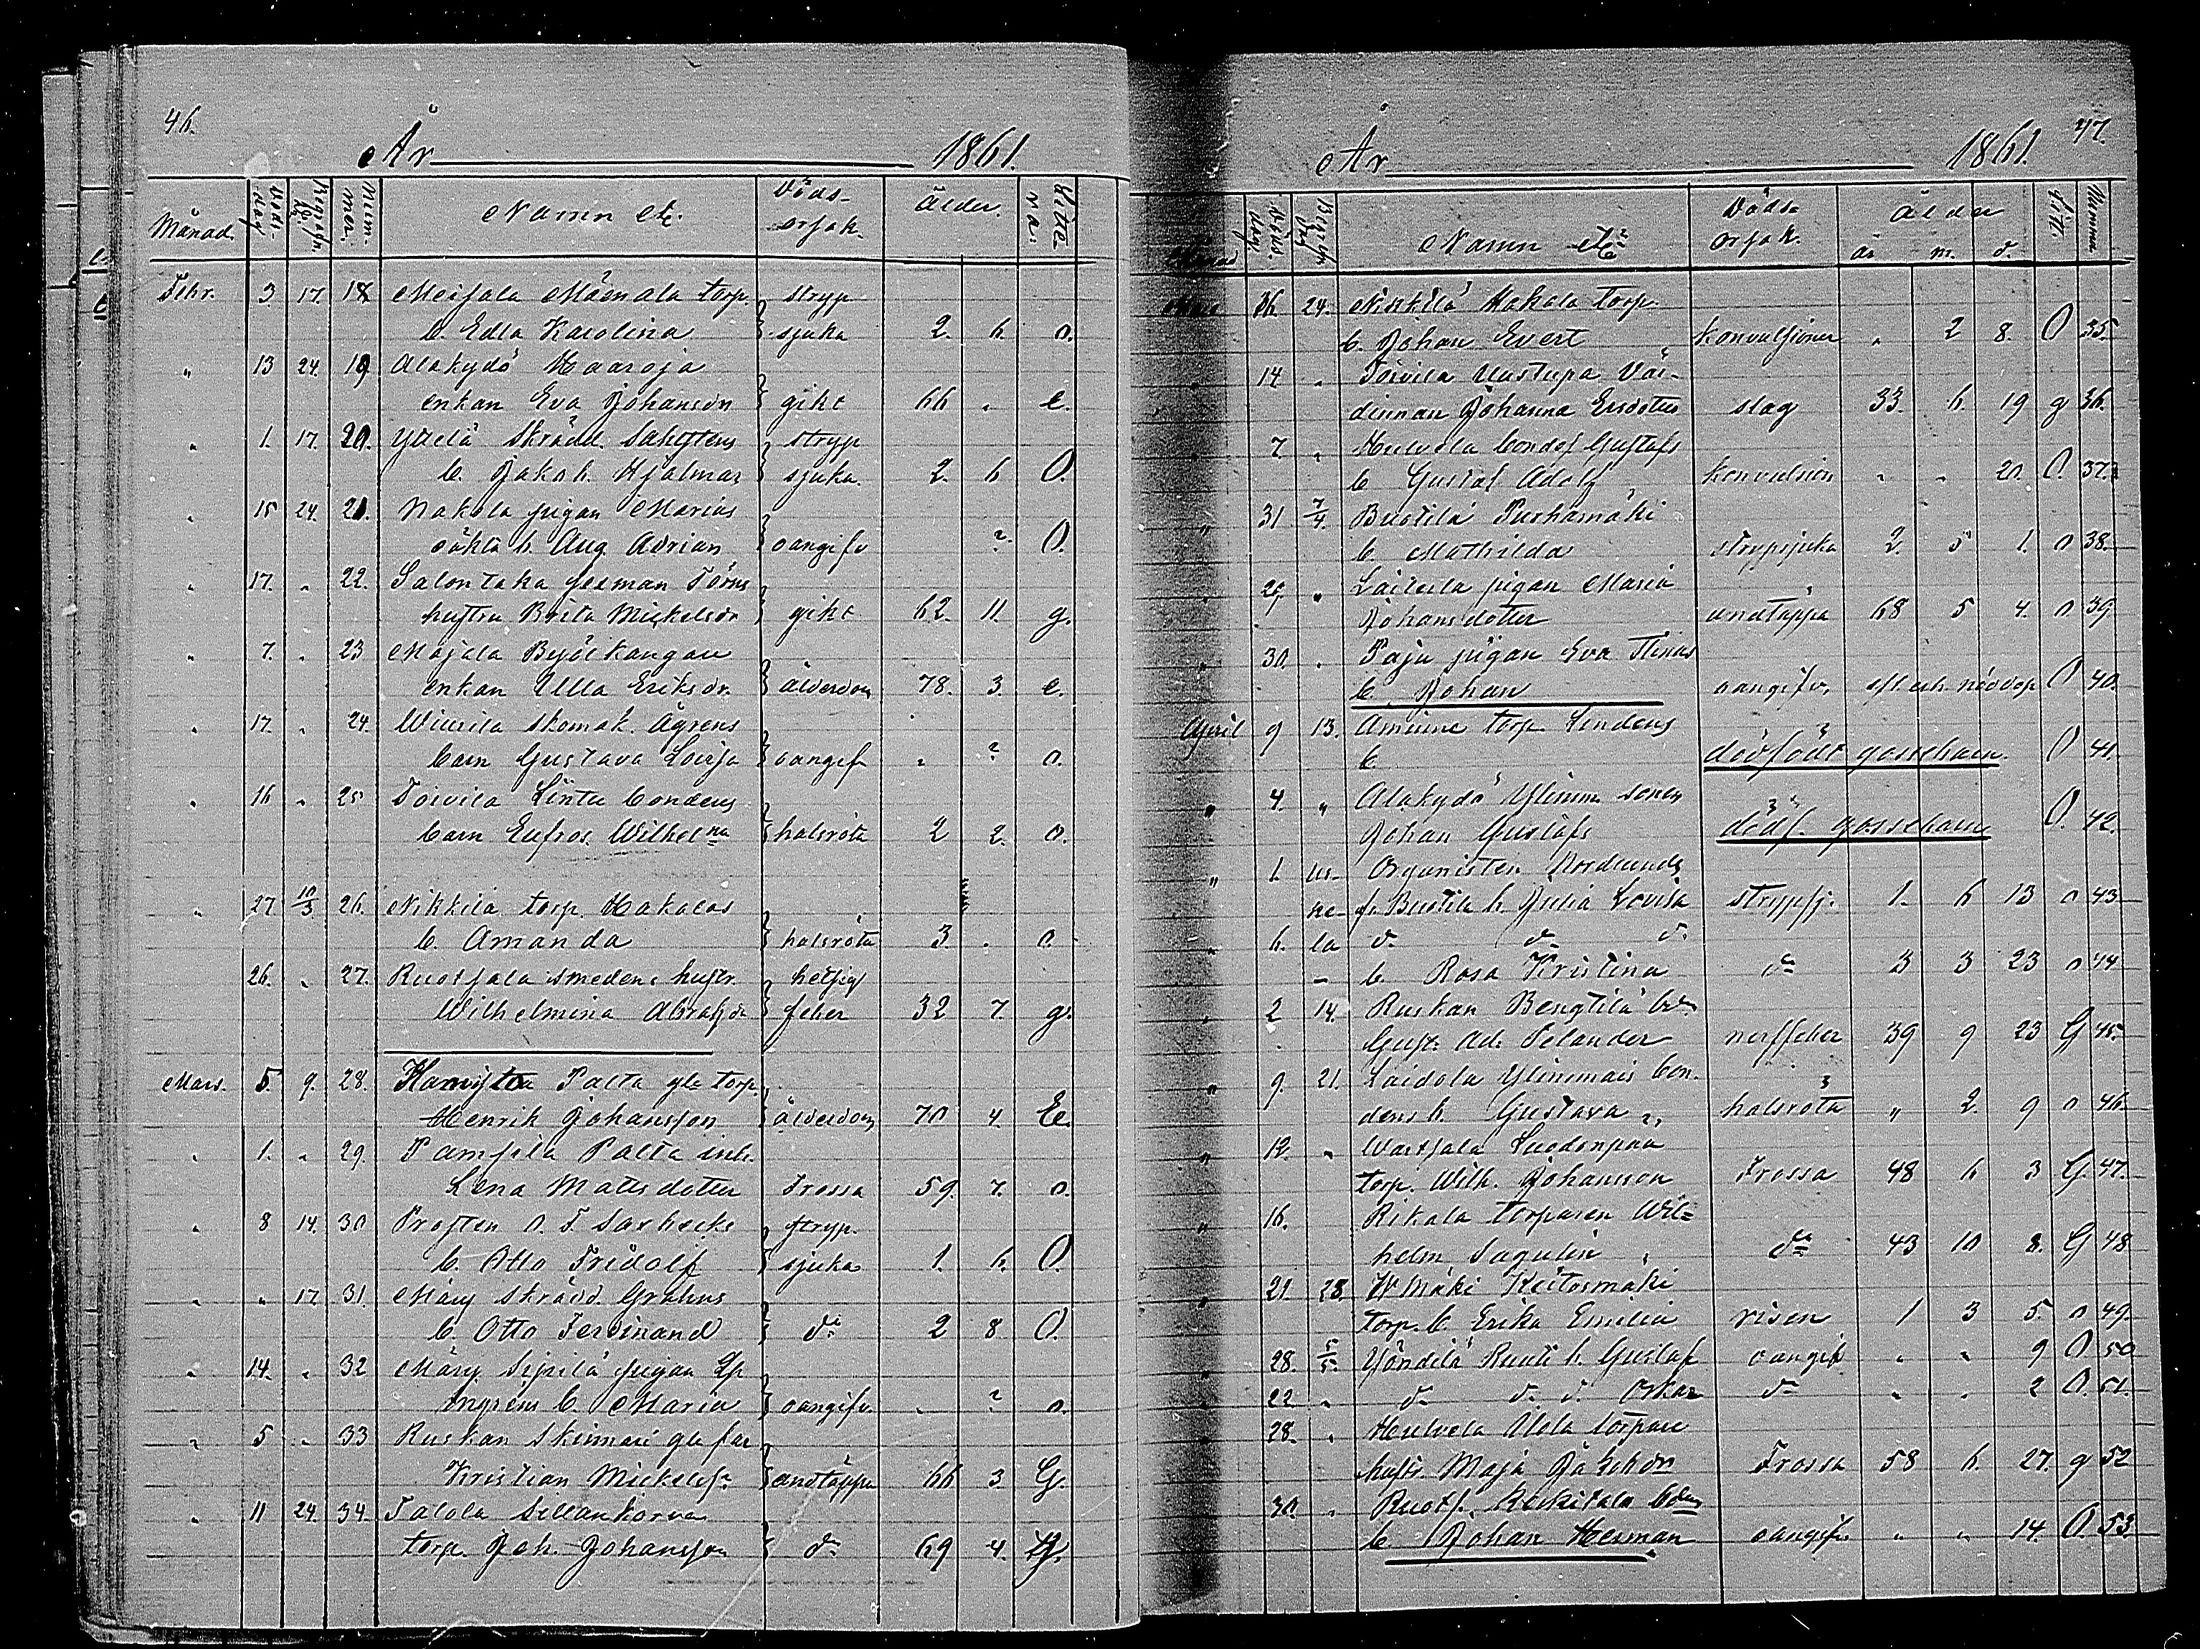 46.
År 1861.
Månad. Döds-dag Begrafn. dag Num-mer. Namn &c. Döds-orsak. Ålder. Stätts
Febr. 3 17. 18 torp. stryp
b. Edla Karolina sjuka 2. 6. o.
" 13 24. 19 Alakydö Haaroja
enkan Eva Johansdr gikt 66 " e.
" 1. 17. 20. Yttelä Skrädd. stryp
b. Jakob Hjalmar sjuka 2. 6 O.
" 15 24. 21. Nakola pigan Marias
oäkta b. Aug. Adrian oangifv ? O.
" 17. " 22. Salontaka
hustru Brita Mickelsdr gikt 62. 11. g.
" 7. " 23
enkan Ulla Eriksdr. ålderdom 78. 3. e.
" 17. " 24. Wiurila skomak. Ågrens
barn Gustava Lovisa oangifv " ? o.
" 16 " 25 Toivila Lintu bondens
barn Eufros. Wilhelna halsröta 2 2. o.
" 27 10/3 26. Nikkilä torp. Hakalas
b. Amanda halsröta 3 . o.
26. " 27. Ruotsala smedens hustr. hetsig
Wilhelmina Abrahsdr feber 32 7. g.
Mars. 5 9. 28. Palta gle torp.
Henrik Johansson ålderdom 70 4. E.
" 1. " 29. Pamfila Palta inh.
Lena Mattsdotter Frossa 59. 7. o.
" 8 14. 30 Prosten stryp.
b. Otto Fridolf sjuka 1. 6. O.
" " 17. 31. Märy skrädd. Grahns
b. Otto Ferdinand do 2 8 O.
" 14. " 32 Märy Sipilä pigan
b. Maria oangifv. " ? o.
" 5 " 33 Ruskan Skinnari gle far
Kristian Mickelss. andtäppa 66 3 G.
" 11 24. 34. Talola Sillankorva
torp. Joh. Johansson do 69 4. G.
47.
År 1861.
Månad Döds-dag. Begrafn. dag Namn &c Döds orsak. Ålder år m. d. Nummer
Mars 16. 24. Nikkilä Hakala torp.
b. Johan Evert konvulsioner " 2 8. O 35.
" 14 " Toivila
Johanna slag 33. 6. 19 g 36.
" 7 " Hulvela bondes Gustafs
b Gustaf Adolf konvulsion " " 20. O. 37.
" 31 7/4. Buotila Purhamäki
b. Mathilda strypsjuka 2. 5 1. o 38.
" 29, " pigan Maria
Johansdotter andtäppa 68 5 4. o 39.
" 30. " Paju pigan Eva Stinas
b. Johan oangifv. eft. erh. nöddop O 40.
April 9 13. torp. Lindens
b. dödfödt gossebarn. O 41.
" 4. " Alakydö Ylinen sonen
Johan Gustafs dödf. gossebarn O. 42.
" 1. ur- Organisten Nordlunds
b. Julia Lovisa strypsj. 1. 6 13 o 43
" 6. la do do do
b. Rosa Kristina do 3 3 23 o 44
" 2 14. Ruskan Bengtilä
Gust. Ad. Selander nerffeber 39 9 23 G 45.
" 9. 21. Laidola bon-
dens b. Gustava halsröta " 2. 9 o 46.
" 12. " Wartsala
torp. Wilh. Johansson Frossa 48 6 3 G 47.
" 16. Rikala torparen Wil=
helm Sagulin do 43 10 8. G 48
" 21. 28.
torp. b. Erika Emilia risen 1 3 5. o 49.
28. 5/5. b. Gustaf oangif " " 9 O 50
22 " do do do Oskar do " " 2 O. 51.
28. " Hulvela torpare
hustr. Maja Frossa 58 6. 27. g 52
30. " Keskitalo
b. Johan Herman oangifv. " " 14. O. 53